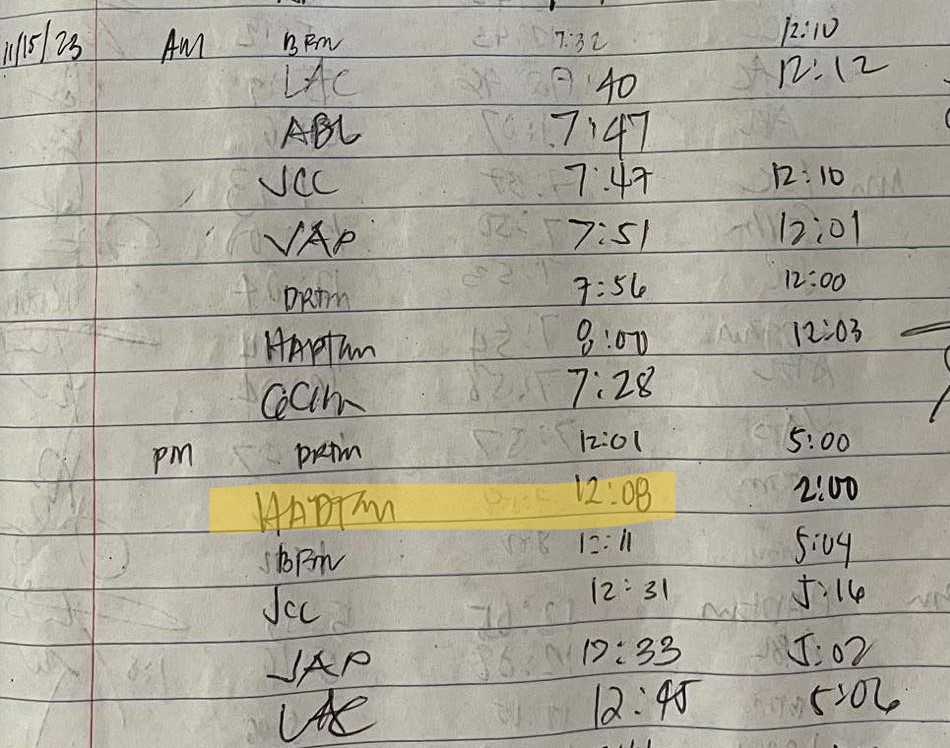 11/15/23 AM BRm 7:32 12:10
LAC 7:40 12:12
ABL 7:47
JCC 7:47 12:10
JAP 7:51 12:01
DRTm 7:56 12:00
HAPTm 8:00 12:03
7:28
PM DRTm 12:01 5:00
HAPTm 12:08 2:00
BRm 12:11 5:04
JCC 12:31 5:16
JAP 12:33 5:02
LAC 12:45 5:06